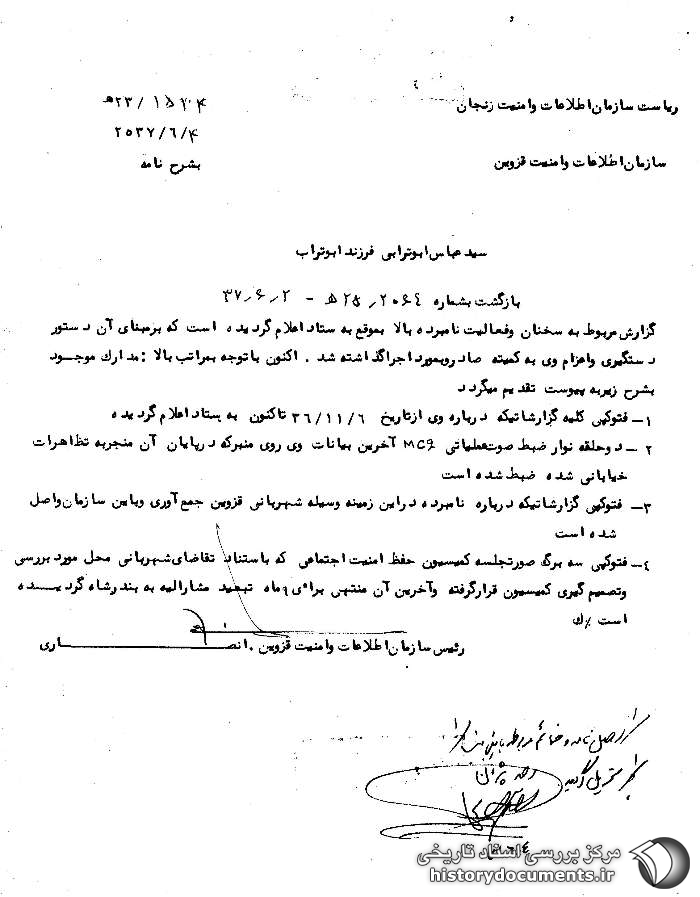 ریاست سازمان اطلاعات وامنیت زنجان
۲۳/۱۵۲۴ه
۲۵۳۷/۶/۴
سازمان اطلاعات وامنیت قزوین
بشرح نامه
سید عباس ابوترابی فرزند ابوتراب
بازگشت بشماره ۲۰۶۴/۲۵ه - ۳۷/۶/۲
گزارش مربوط به سخنان وفعالیت نامبرده بالا بموقع به ستاد اعلام گردیده است که برمبنای آن دستور
دستگیری واعزام وی به کمیته صادر وبمورد اجراگذاشته شد . اکنون باتوجه بمراتب بالا : مدارك موجود
بشرح زیربه پیوست تقدیم میگردد
۱- فتوکپی کلیه گزارشاتیکه درباره وی ازتاریخ ۳۶/۱۱/۶ تاکنون به ستاد اعلام گردیده
۲ - دوحلقه نوار ضبط صوتعملیاتی MC9 آخرین بیانات وی روی منبرکه درپایان آن منجربه تظاهرات
خیابانی شده ضبط شده است
۳- فتوکپی گزارشاتیکه درباره نامبرده دراین زمینه وسیله شهربانی قزوین جمع آوری وباین سازمان واصل
شده است
٤- فتوکپی سه برگ صورتجلسه کمیسیون حفظ امنیت اجتماعی که باستناد تقاضای شهربانی محل مورد بررسی
وتصمیم گیری کمیسیون قرارگرفته وآخرین آن منتهی برای ۶ ماه تبعید مشارالیه به بندرشاه گردیـــده
است %ك
رئیس سازمان اطلاعات وامنیت قزوین . انصـــــــاری
اصل نامه و ضمائم مربوطه
تحویل گردید
مرکز بررسی اسناد تاریخی
historydocuments.ir